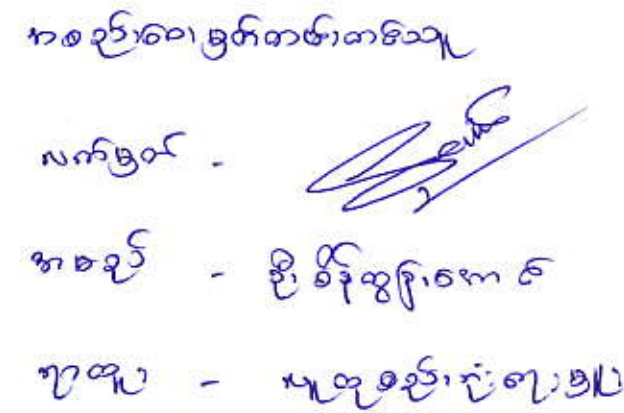 အစည်းဝေးမှတ်တမ်းတင်သူ
လက်မှတ် -
အမည် - ဦးစိန်ထွန်းအောင်
ရာထူး - လူထုစည်းရုံးရေးမှူး